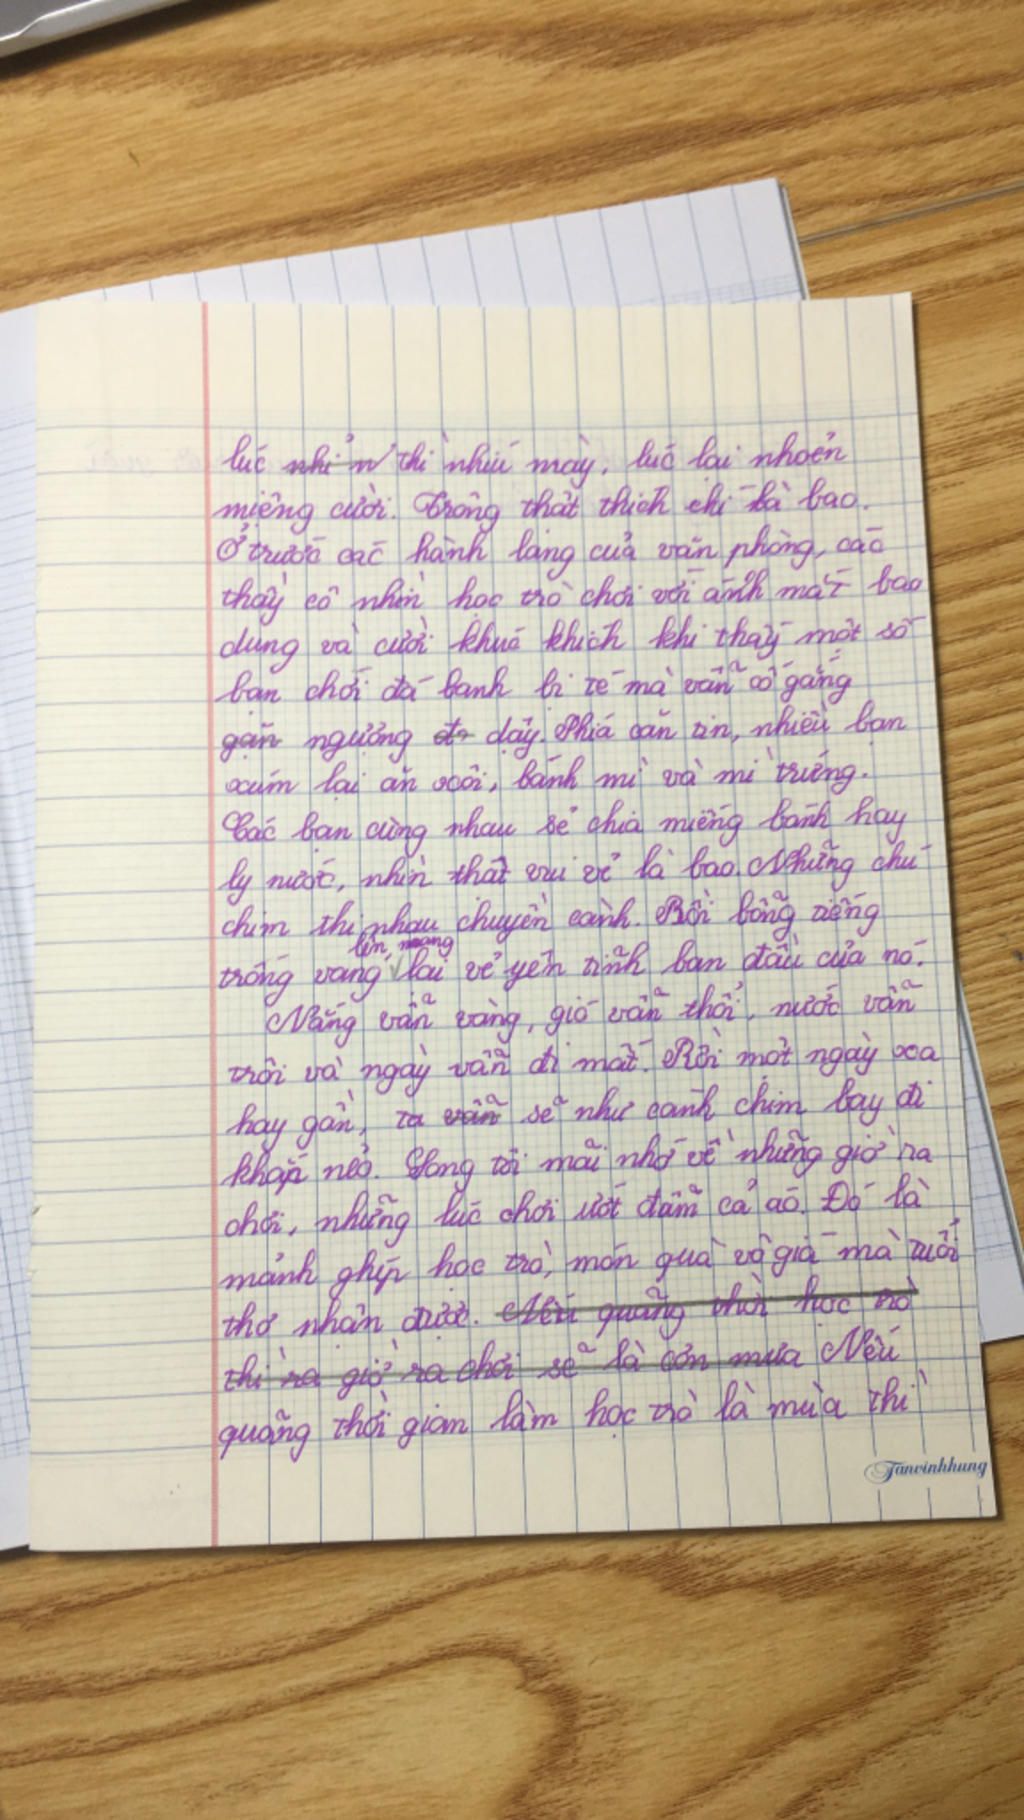 lúc nhỉn thì nhíu mày, lúc lại nhoẻn
miệng cười. Trông thật thích chí là bao.
Ở trước các hành lang của văn phòng, các
thầy cô nhìn học trò chơi với ánh mắt bao
dung và cười khúc khích khi thấy một số
bạn chơi đá banh bị té mà vẫn cố gắng
gắn ngượng dậy. Phía căn tin, nhiều bạn
xúm lại ăn xôi, bánh mì và mì trứng.
Các bạn cùng nhau sẻ chia miếng bánh hay
ly nước, nhìn thật vui vẻ là bao. Những chú
chim thi nhau chuyền cành. Rồi bỗng tiếng
lên, mang
trống vang lại vẻ yên tĩnh ban đầu của nó.
Nắng vẫn vàng, gió vẫn thổi, nước vẫn
trôi và ngày vẫn đi mất. Rồi một ngày xa
hay gần, ta vẫn sẽ như cánh chim bay đi
khắp nẻo. Song tôi mãi nhớ về những giờ ra
chơi, những lúc chơi ướt đẫm cả áo. Đó là
mảnh ghép học trò, món quà vô giá mà tuổi
thơ nhận được. Nếu quãng thời học trò
thì ra giờ ra chơi sẽ là cơn mưa Nếu
quãng thời gian làm học trò là mùa thì
Tanvinhhung